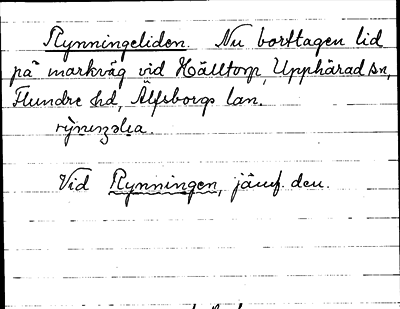 Rynningeliden. Nu borttagen lid
på markväg vid Hälltorp, Upphärad sn,
Flundre hd, Älfsborgs län.
Vid Rynningen, jämf. den.